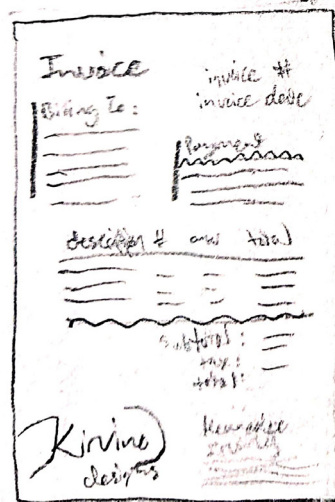 Invoice
invoice #
invoice date
Billing To:
Payment
description # total
subtotal:
tax:
total:
Kirvino
designs